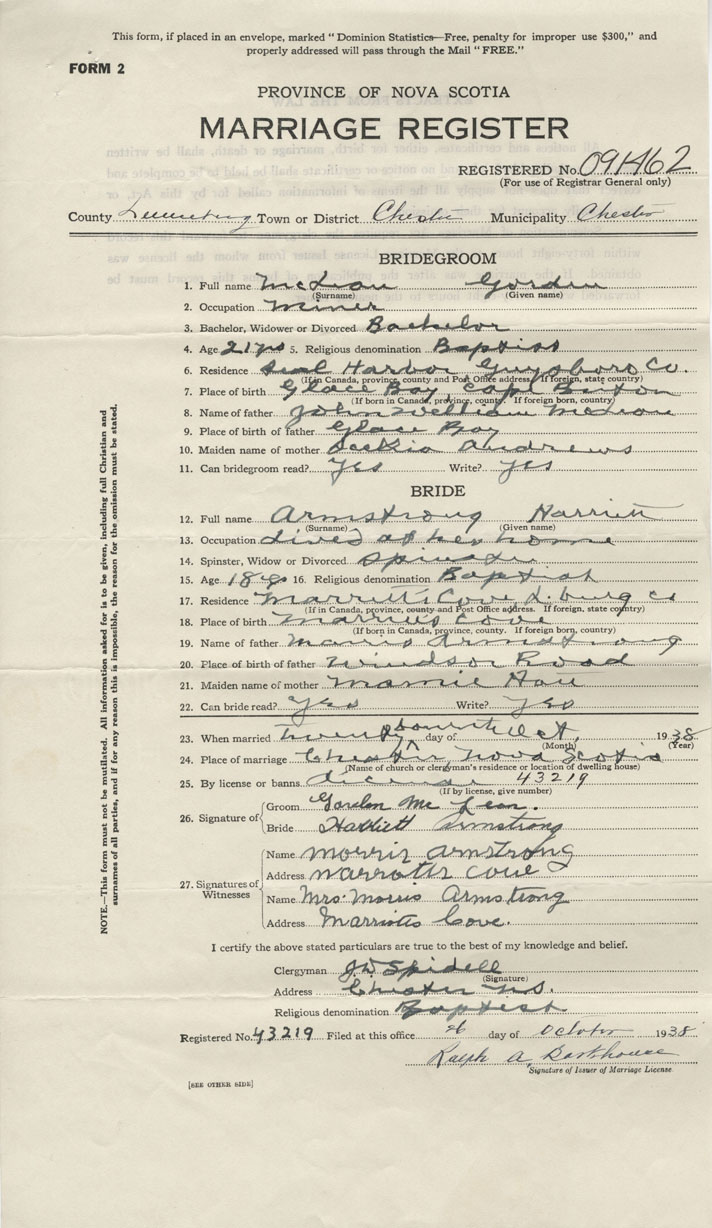 This form, if placed in an envelope, marked "Dominion Statistics—Free, penalty for improper use $300," and
properly addressed will pass through the Mail "FREE."
FORM 2
PROVINCE OF NOVA SCOTIA
MARRIAGE REGISTER
REGISTERED No. 091462
(For use of Registrar General only)
County Lunenburg Town or District Chester Municipality Chester
BRIDEGROOM
1. Full name McLean Gordon
(Surname) (Given name)
2. Occupation Miner
3. Bachelor, Widower or Divorced Bachelor
4. Age 21 yrs 5. Religious denomination Baptist
6. Residence Seal Harbor Guysboro Co.
(If in Canada, province, county and Post Office address. If foreign, state country)
7. Place of birth Glace Bay Cape Breton
(If born in Canada, province, county. If foreign born, country)
8. Name of father John William McLean
9. Place of birth of father Glace Bay
10. Maiden name of mother Andrews
11. Can bridegroom read? Yes Write? Yes
BRIDE
12. Full name Armstrong Harriett
(Surname) (Given name)
13. Occupation Lived at her home
14. Spinster, Widow or Divorced Spinster
15. Age 18 yrs 16. Religious denomination Baptist
17. Residence Marriotts Cove L. burg Co
(If in Canada, province, county and Post Office address. If foreign, state country)
18. Place of birth Marriotts Cove
(If born in Canada, province, county. If foreign born, country)
19. Name of father Morris Armstrong
20. Place of birth of father Windsor Road
21. Maiden name of mother Mamie
22. Can bride read? Yes Write? Yes
23. When married twenty fourth day of Oct. 1938
(Month) (Year)
24. Place of marriage Chester Nova Scotia
(Name of church or clergyman's residence or location of dwelling house)
25. By license or banns License 43219
(If by license, give number)
26. Signature of
Groom Gordon Mc Lean.
Bride Harriett Armstrong
27. Signatures of Witnesses
Name Morris Armstrong
Address Marriotts Cove
Name Mrs. Morris Armstrong
Address Marriotts Cove.
I certify the above stated particulars are true to the best of my knowledge and belief.
Clergyman J.W. Spidell
(Signature)
Address Chester N.S.
Religious denomination Baptist
Registered No. 43219 Filed at this office 26 day of October 1938
Ralph A. Barkhouse
Signature of Issuer of Marriage License.
[SEE OTHER SIDE]
NOTE.—This form must not be mutilated. All information asked for is to be given, including full Christian and
surnames of all parties, and if for any reason this is impossible, the reason for the omission must be stated.